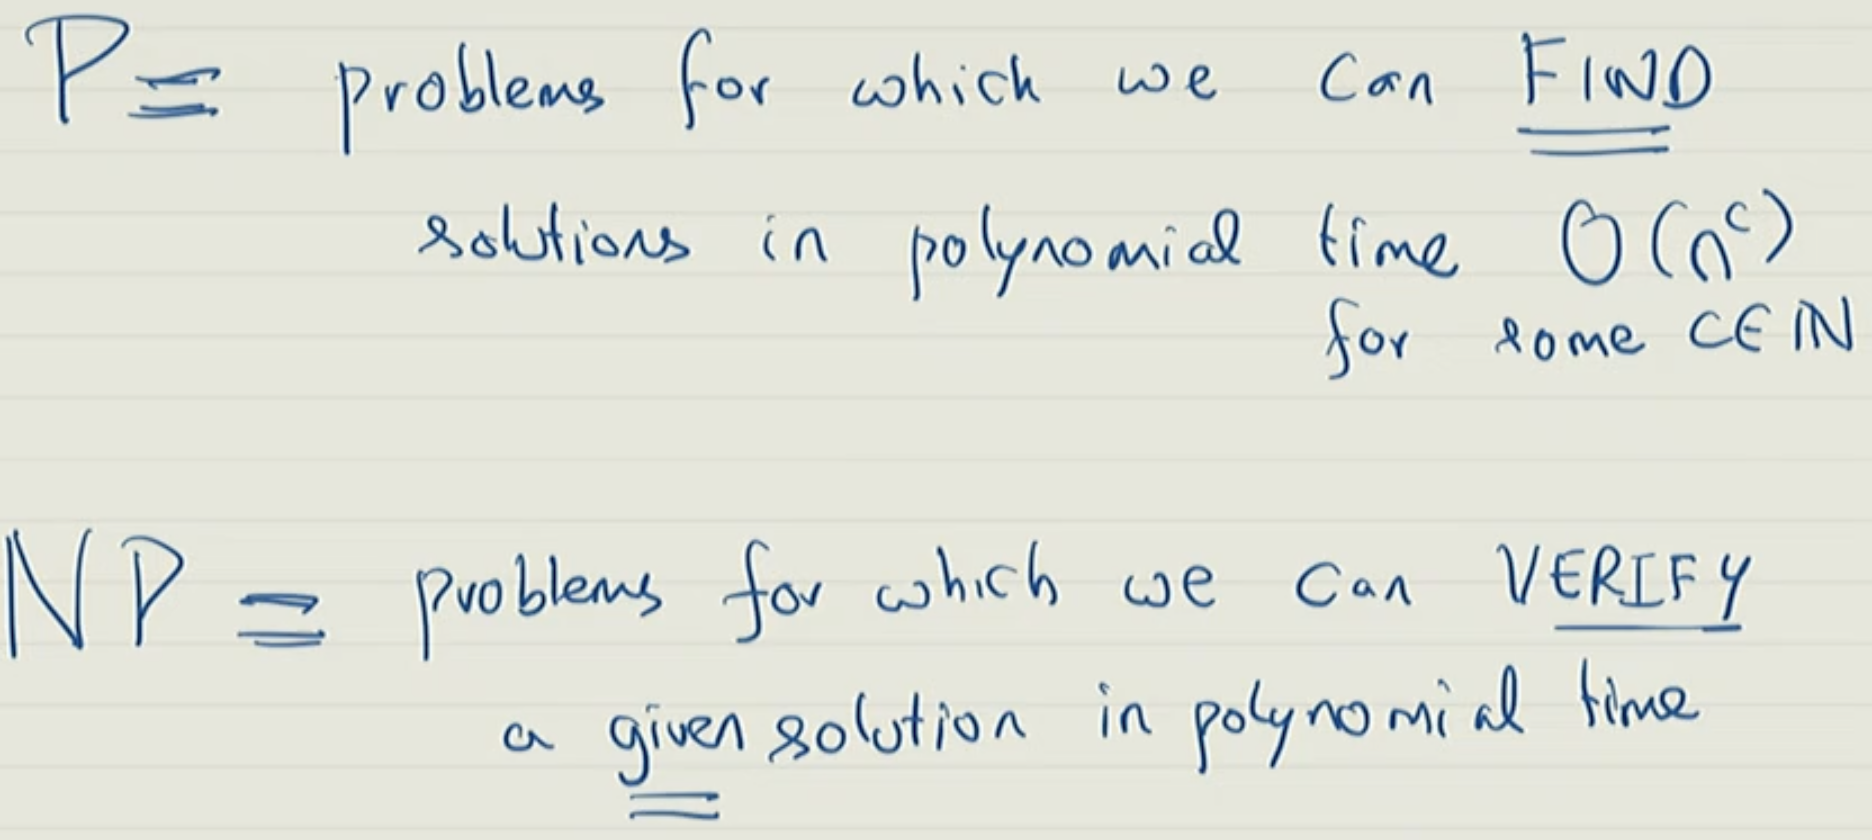 P = problems for which we can FIND
solutions in polynomial time O(n^c)
for some C ∈ ℕ
NP = problems for which we can VERIFY
a given solution in polynomial time